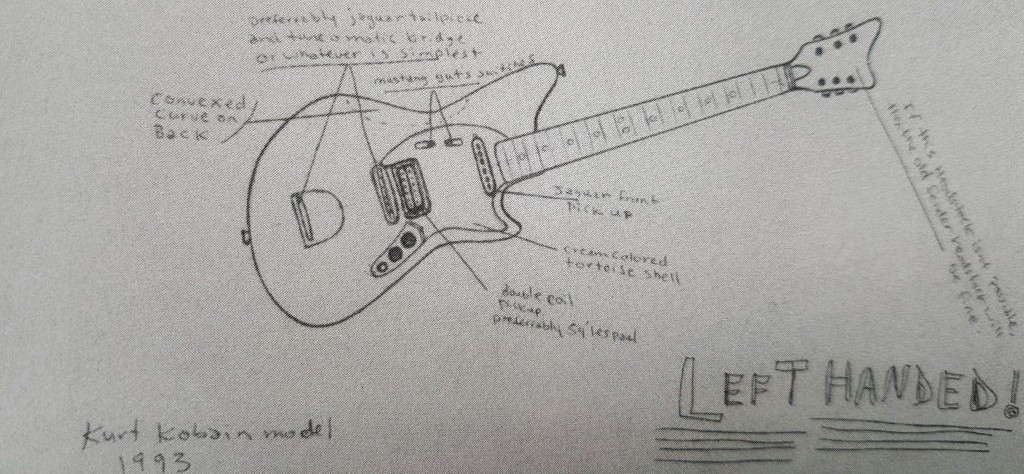 preferrably jaguar tailpiece
and tune o matic bridge
or whatever is simplest
mustang guts switches
Convexed
curve on
Back
Jaguar front
Pick up
cream colored
tortoise shell
double coil
pickup
preferrably 59' les paul
If this Headstock isnt possible,
the old fender headstock will
be fine
LEFT HANDED!
Kurt Kobain model
1993